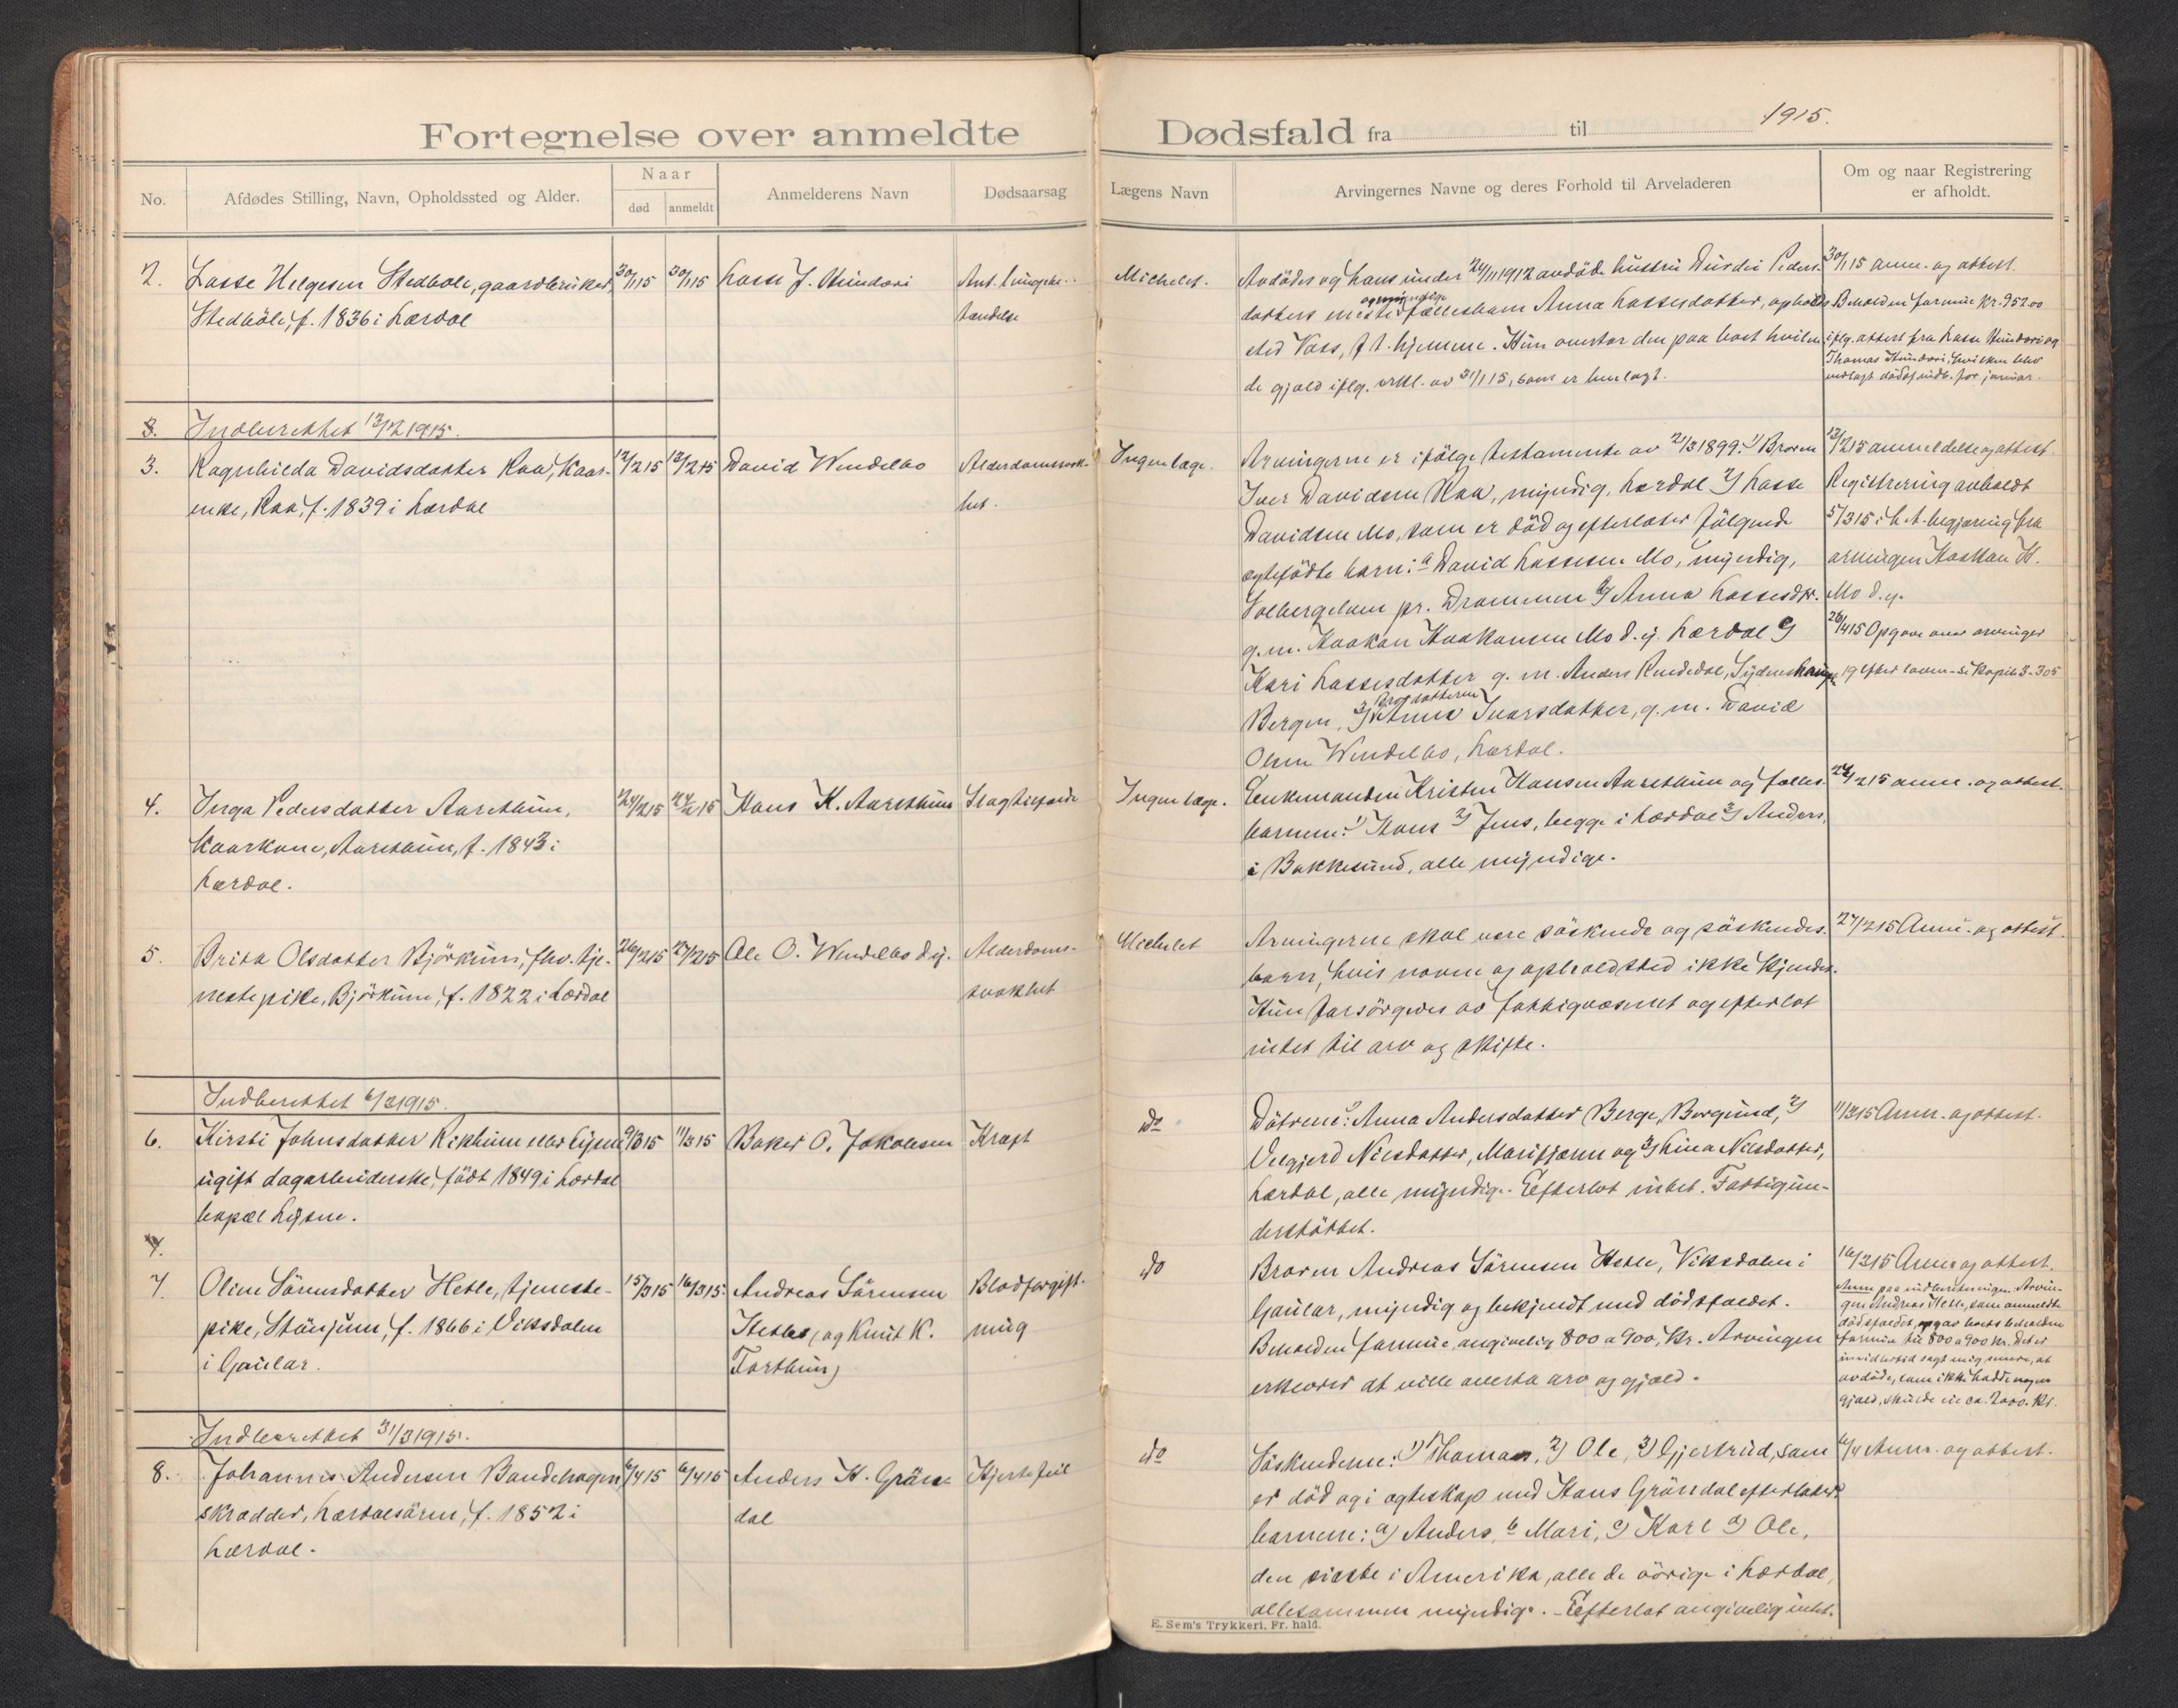 1915.
Fortegnelse over anmeldte Dødsfald fra til
No.
Afdødes Stilling, Navn, Opholdssted og Alder.
Naar
død
anmeldt
Anmelderens Navn
Dødsaarsag
Lægens Navn
Arvingernes Navne og deres Forhold til Arveladeren
Om og naar Registrering
er afholdt.
2. Lasse Helgesen Stedbole, gaardbruker,
Stedböle, f. 1836 i Lærdal
30/1 15
30/1 15
Lasse J. Hundori
Ant. lungebe-
tændelse
Michelet.
Avdödes og hans under 24/11 1912 avdöde hustru Durdei Peders-
datters eneste og myndige fællesbarn Anna Lassesdatter, opholds
sted Voss, f. t. hjemme. Hun overtar den paa boet hvilen
de gjæld iflg. erkl. av 31/1 15, som er henlagt.
30/1 15 anm. og attest.
Beholden formue kr. 952.00
iflg. attest fra Lasse Hundori og
Thomas Hundori, hvilken blev
vedlagt dödsf. indb. for januar.
3. Indberettet 13/2 1915.
3. Ragnhilda Davidsdatter Raa, kaar-
enke, Raa, f. 1839 i Lærdal
12/2 15
13/2 15
David Wendelbo
Alderdomssvak-
het.
Ingen læge.
Arvingerne er ifölge testamente av 21/3 1899: 1) Broren
Iver Davidsen Raa, myndig, Lærdal 2) Lasse
Davidsen Mo, som er död og efterlater fölgende
egtefödte barn: a David Lassesen Mo, myndig,
Solbergelven pr. Drammen b) Anna Lassesdtr.
g. m. Haakon Haakonsen Mo d. y. Lærdal c)
Kari Lassesdatter g. m. Anders Rededal, Sydneshaugen
Bergen, 3) Brordatteren Anna Iversdatter, g. m. David
Olsen Wendelbo, Lærdal.
13/2 15 anmeldelse og attest.
Registrering avholdt
5/3 15 i h. t. begjæring fra
arvingen Haakon H.
Mo d. y.
26/4 15 Opgave over arvinger
19 efter loven - se kopib. 3-305
4. Inga Pedersdatter Aarethun,
kaarkone, Aarethun, f. 1843 i
Lærdal.
24/2 15
24/2 15
Hans K. Aarethun
Slagtilfælde
Ingen læge.
Enkemanden Kristen Hansen Aarethun og fælles-
barnene: 1) Hans 2) Jens, begge i Lærdal 3) Anders,
i Bakkesund, alle myndige.
24/2 15 anm. og attest.
5. Brita Olsdatter Björkum, fhv. tje-
nestepike, Björkum, f. 1822 i Lærdal
26/2 15
27/2 15
Ole O. Wendelbo d. y.
Alderdoms-
svakhet
Michelet
Arvingerne skal være söskende og söskendes-
barn, hvis navne og opholdssted ikke kjendes.
Hun forsörgedes av fattigvæsenet og efterlot
intet til arv og skifte.
27/2 15 Anm. og attest.
Indberettet 6/3 1915.
6. Kirsti Johnsdatter Rikhum eller Lysne
ugift dagarbeiderske, födt 1849 i Lærdal
bopæl Lysne.
9/3 15
11/3 15
Baker O. Jakobsen
Kræft
do
Dötrene: 1) Anna Andersdatter Berge, Borgund, 2)
Velgjerd Nilsdatter, Marifjæren og 3) Lina Nilsdatter,
Lærdal, alle myndige. Efterlot intet. Fattigun-
derstöttet.
11/3 15 Anm. og attest.
7.
7. Oline Sörensdatter Hetle, tjeneste-
pike, Stönjum, f. 1866 i Viksdalen
i Gaular.
15/3 15
16/3 15
Andreas Sörensen
Hetle, og Knut K.
Torthun)
Blodforgift-
ning
do
Broren Andreas Sörensen Hetle, Viksdalen i
Gaular, myndig og bekjendt med dödsfaldet.
Beholden formue, angivelig 800 a 900, kr. Arvingen
erklærer at ville overta arv og gjæld.
16/3 15 Anm. og attest.
Anm. paa indberetningen. Arvin-
gen Andreas Hetle, som anmeldte
dödsfaldet, opgav boets beholden
formue til 800 a 900 kr. Det er
imidlertid sagt mig senere, at
avdöde, som ikke hadde nogen
gjæld, skulde eie ca. 2000. kr.
Indberettet 31/3 1915.
8. Johannes Andersen Bandehagen,
skrædder, Lærdalsören, f. 1852 i
Lærdal.
6/4 15
6/4 15
Anders H. Grön-
dal
Hjertefeil
do
Söskendene: 1) Thomas, 2) Ole, 3) Gjertrud, som
er död og i egteskap med Hans Gröndal efterlater
barnene: a) Anders, b Mari, c) Karl d) Ole,
den sidste i Amerika, alle de övrige i Lærdal,
allesammen myndige. - Efterlot angivelig intet.
6/4 Anm. og attest.
E. Sem's Trykkeri, Fr. hald.